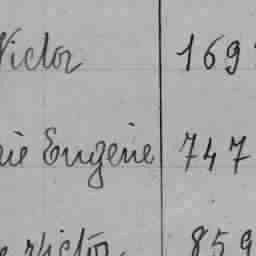 Victor 169
rie Eugénie 747
Victor 859